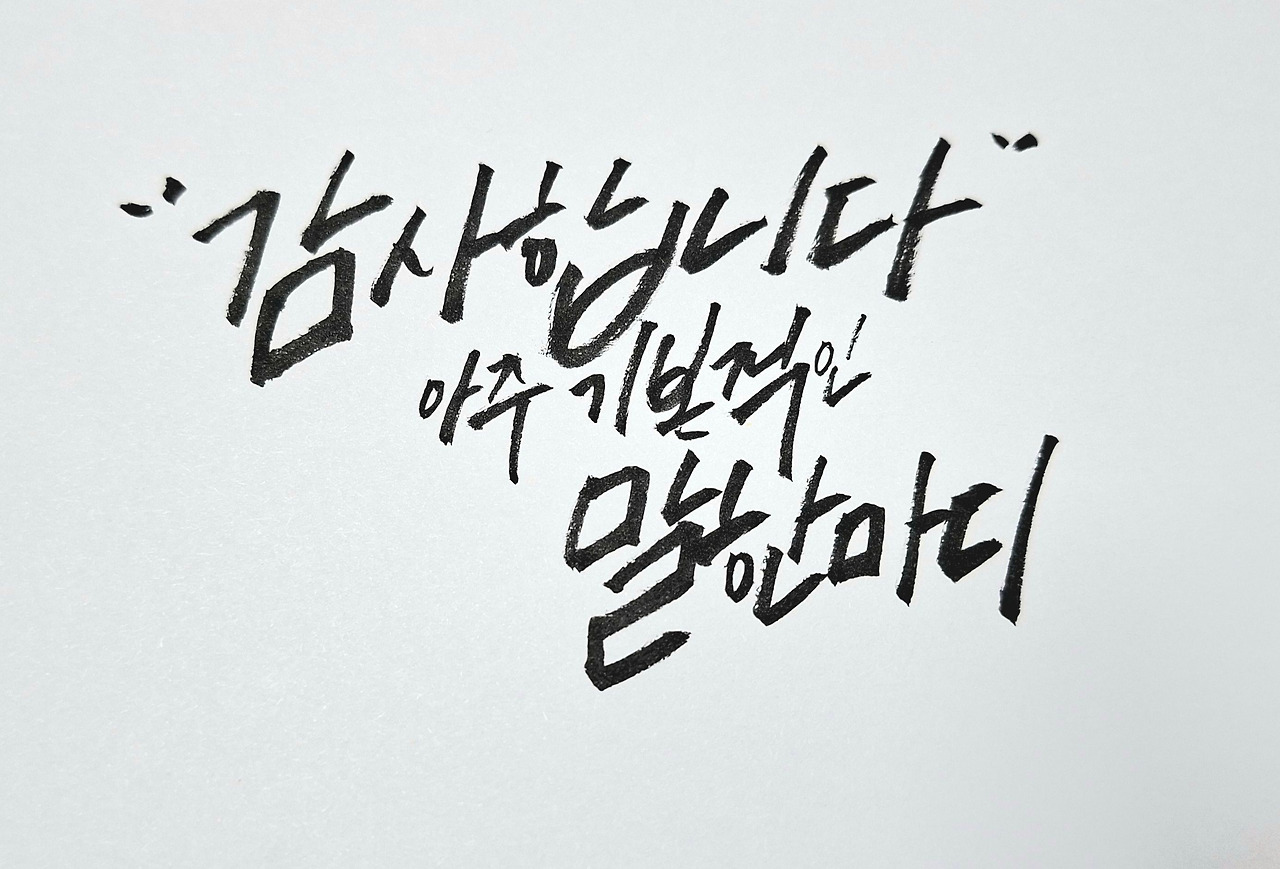 "감사합니다"
아주 기본적인
말 한마디